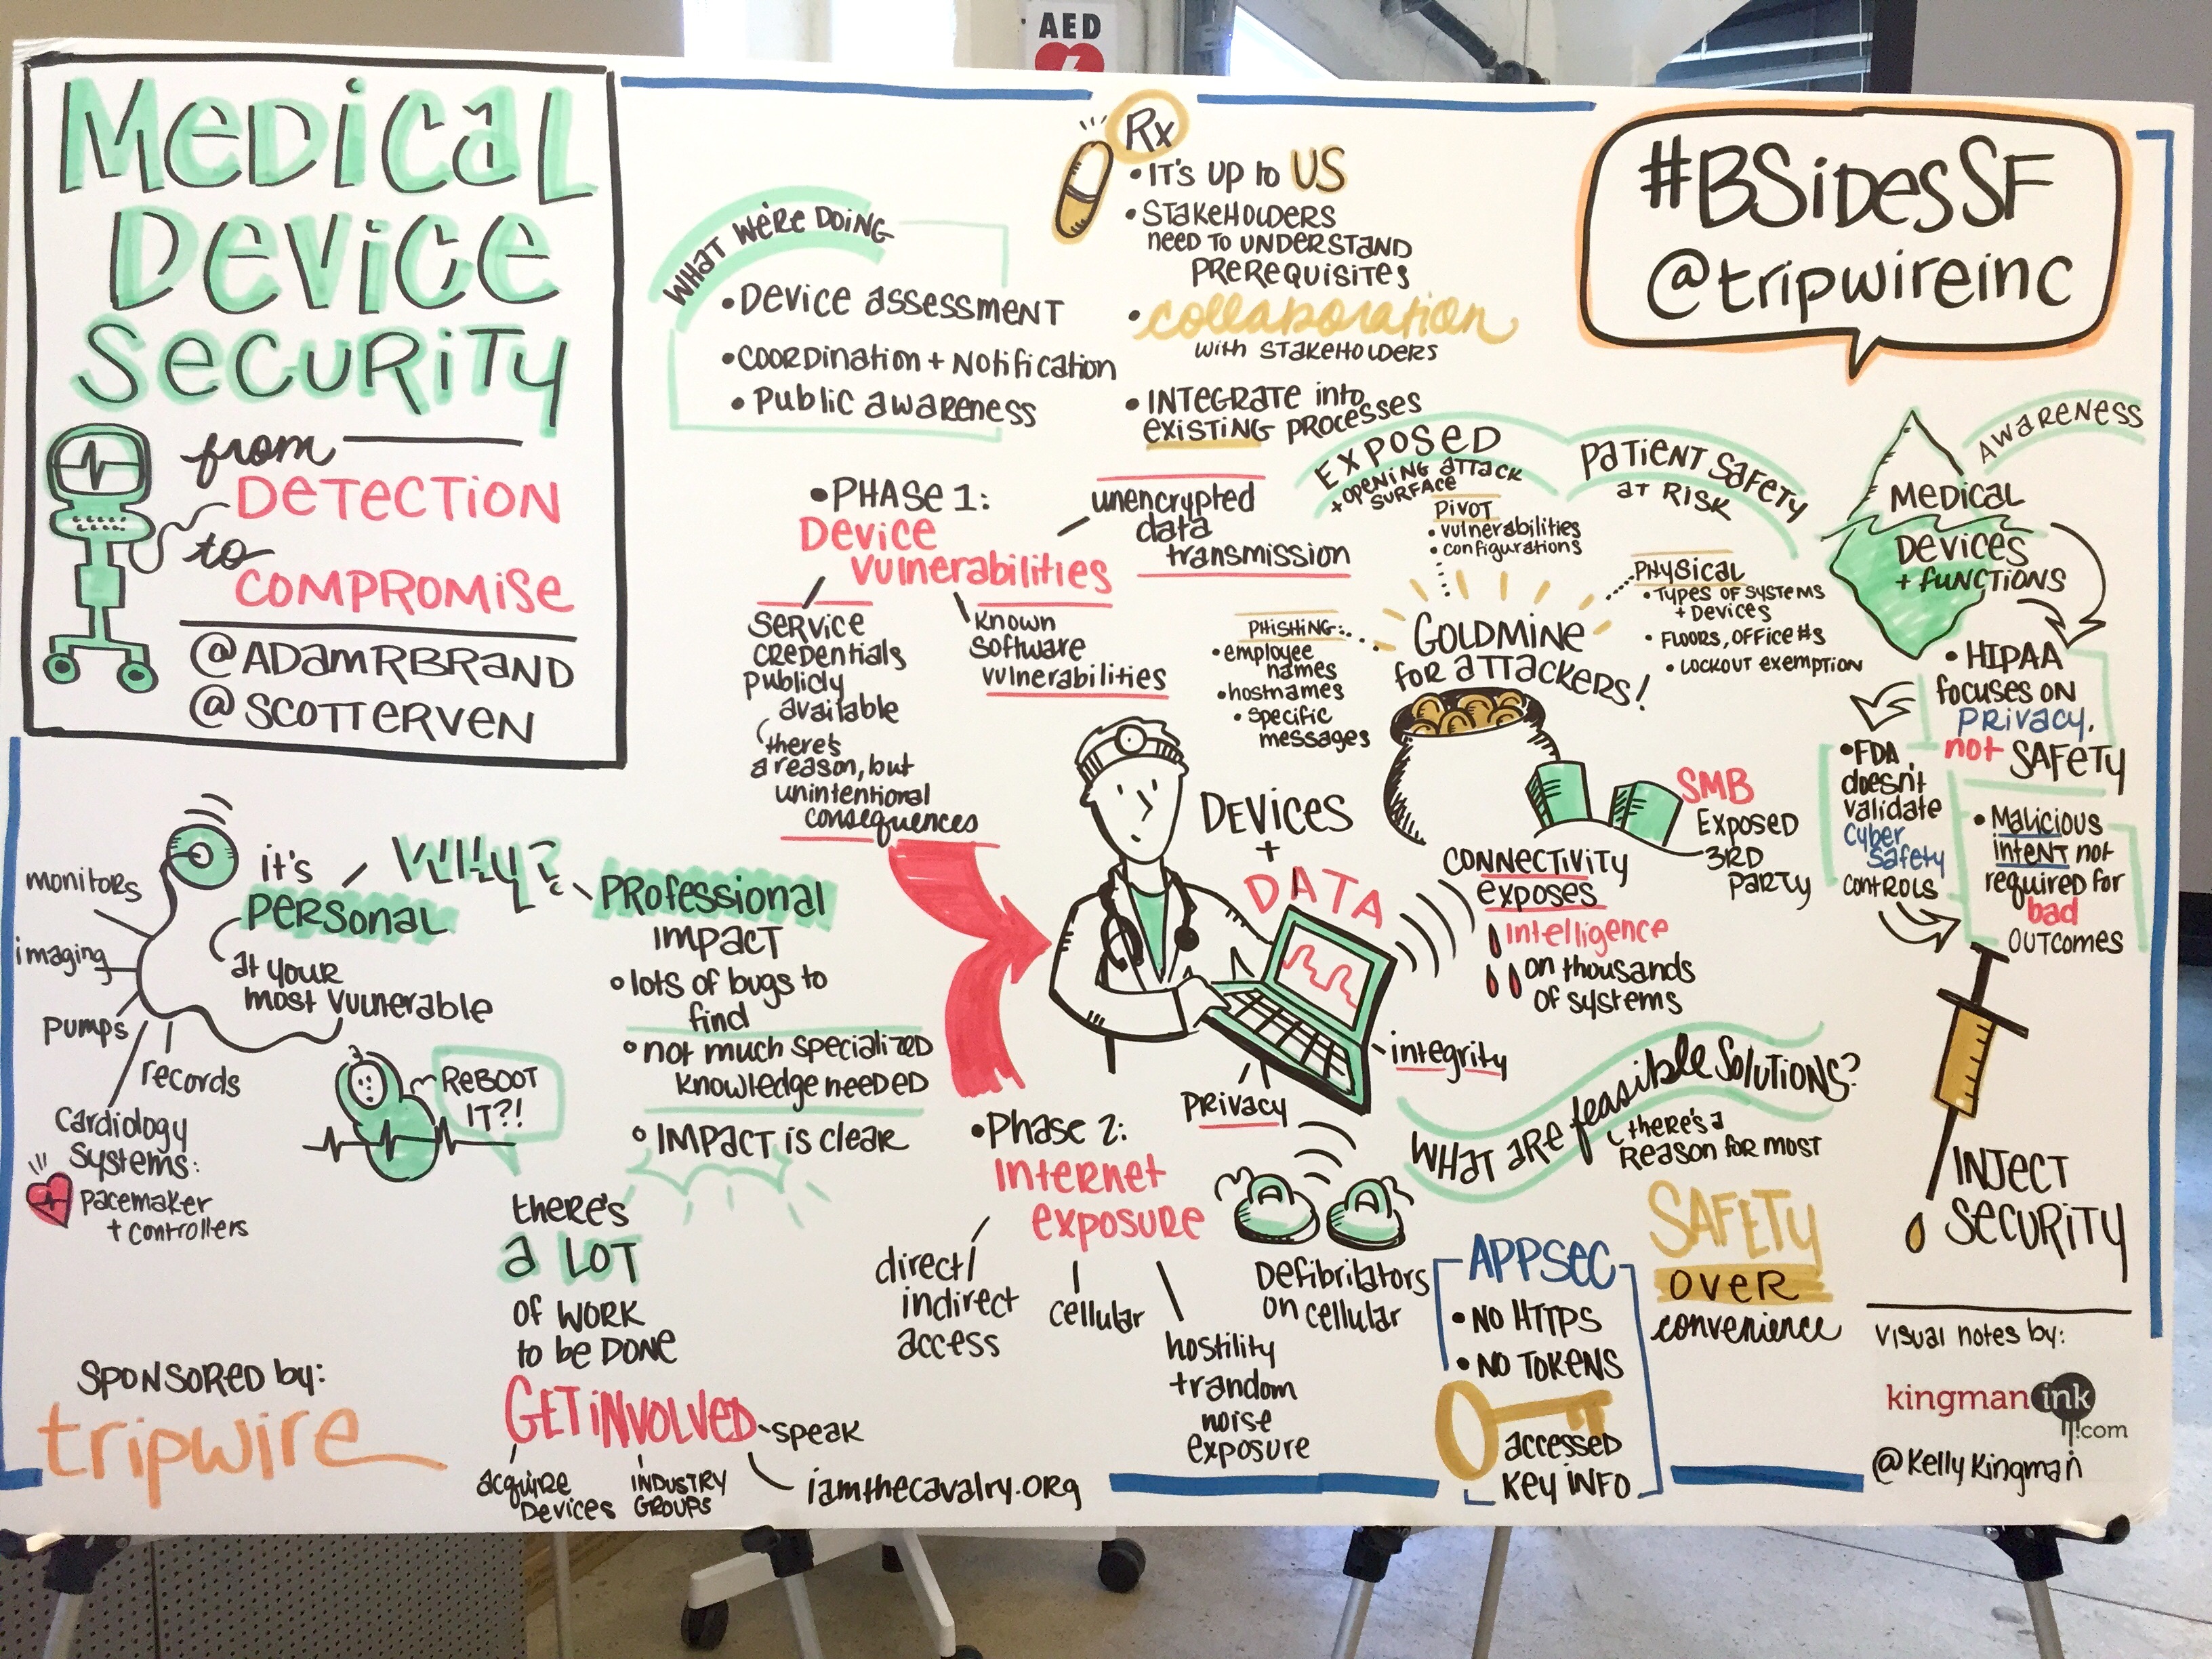 AED
MEDICAL
DEVICE
SECURITY
from
DETECTION
to
COMPROMISE
@ADAMRBRAND
@SCOTTERVEN
WHAT WE'RE DOING
• DEVICE ASSESSMENT
• COORDINATION + NOTIFICATION
• PUBLIC AWARENESS
Rx
• IT'S UP TO US
• STAKEHOLDERS
NEED TO UNDERSTAND
PREREQUISITES
• collaboration
WITH STAKEHOLDERS
• INTEGRATE INTO
EXISTING PROCESSES
#BSidesSF
@tripwireinc
• PHASE 1:
Device
vulnerabilities
unencrypted
data
transmission
SERVICE
CREDENTIALS
publicly
available
there's
a reason, but
unintentional
consequences
KNOWN
Software
vulnerabilities
EXPOSED
+ OPENING ATTACK
SURFACE
PATIENT SAFETY
AT RISK
PIVOT
• vulnerabilities
• configurations
PHISHING:
• employee
names
• hostnames
• specific
messages
GOLDMINE
FOR ATTACKERS!
PHYSICAL
• TYPES OF SYSTEMS
+ DEVICES
• FLOORS, OFFICE #S
• LOCKOUT EXEMPTION
AWARENESS
MEDICAL
DEVICES
+ FUNCTIONS
• HIPAA
focuses on
PRIVACY,
not SAFETY
• FDA
doesn't
validate
Cyber
Safety
CONTROLS
• Malicious
intent not
required for
bad
OUTCOMES
INJECT
SECURITY
DEVICES
+
DATA
SMB
EXPOSED
3RD
PARTY
CONNECTIVITY
exposes
Intelligence
on thousands
of systems
integrity
PRIVACY
WHY?
it's
PERSONAL
at your
most vulnerable
monitors
imaging
pumps
records
Cardiology
Systems:
pacemaker
+ controllers
REBOOT
IT?!
PROfessional
IMPACT
• lots of bugs to
find
• not much specialized
knowledge needed
• IMPACT is clear
there's
a LOT
of WORK
to be DONE
GET iNVOLVED
speak
acquire
Devices
INDUSTRY
GROUPS
iamthecavalry.org
• Phase 2:
Internet
exposure
direct/
indirect
access
cellular
hostility
+ random
noise
exposure
Defibrilators
on cellular
WHAT ARE feasible SOLUTIONS?
there's a
Reason for most
APPSEC
• NO HTTPS
• NO TOKENS
accessed
KEY INFO
SAFETY
OVER
convenience
SPONSORED by:
tripwire
VISUAL notes by:
kingman ink
.com
@Kelly Kingman